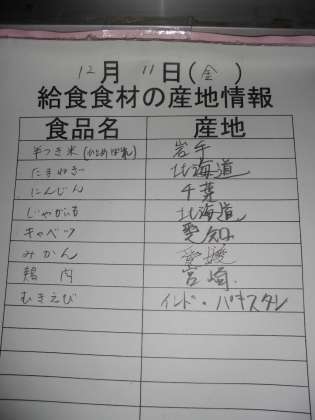 12月 11日(金)
給食食材の産地情報
食品名 産地
半つき米(ひとめぼれ) 岩手
たまねぎ 北海道
にんじん 千葉
じゃがいも 北海道
キャベツ 愛知
みかん 愛媛
鶏肉 宮崎
むきえび インド・パキスタン